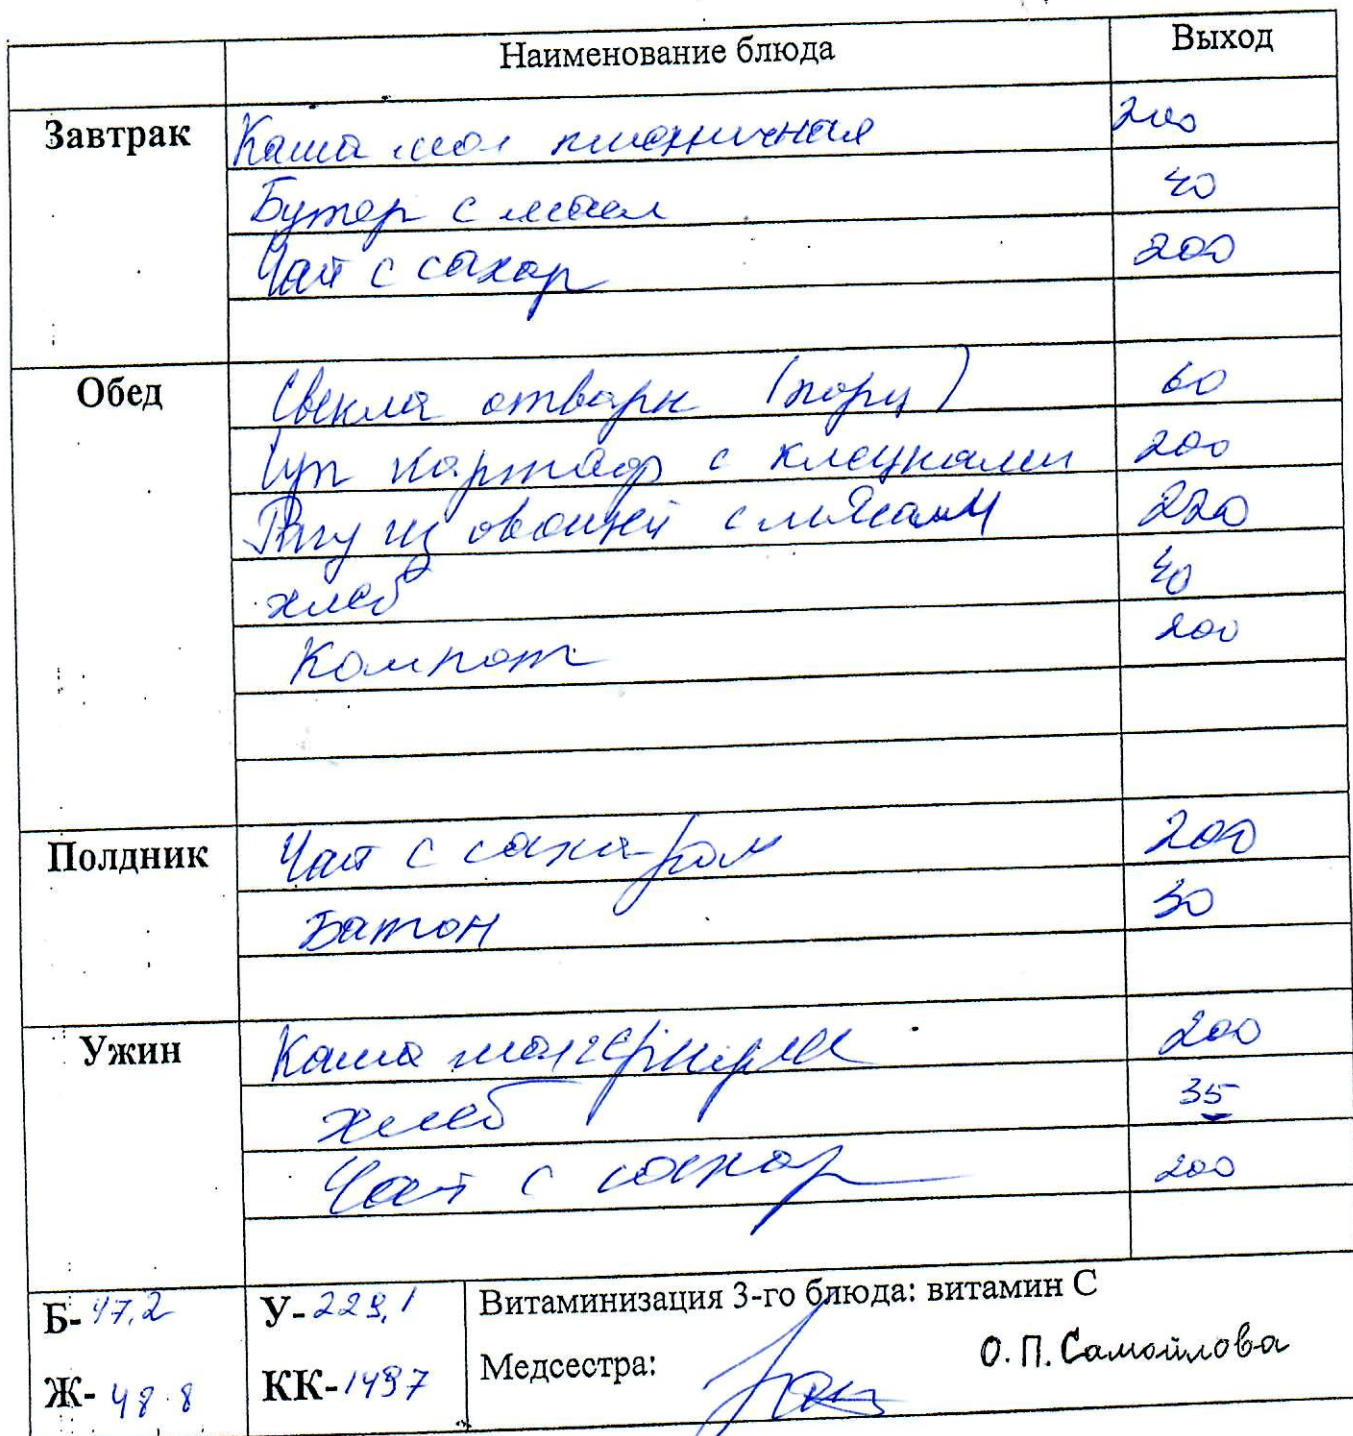 Наименование блюда Выход
Завтрак Каша мол пшеничная 200
Бутер с масл 40
Чай с сахар 200
Обед Свекла отварн (порц) 60
Суп картоф с клецками 200
Рагу из овощей с мясом 220
хлеб 40
Компот 200
Полдник Чай с сахаром 200
Батон 30
Ужин Каша 200
хлеб 35
Чай с сахар 200
Б-47,2 У-229,1 Витаминизация 3-го блюда: витамин С
Ж-48.8 КК-1497 Медсестра: О.П. Самойлова